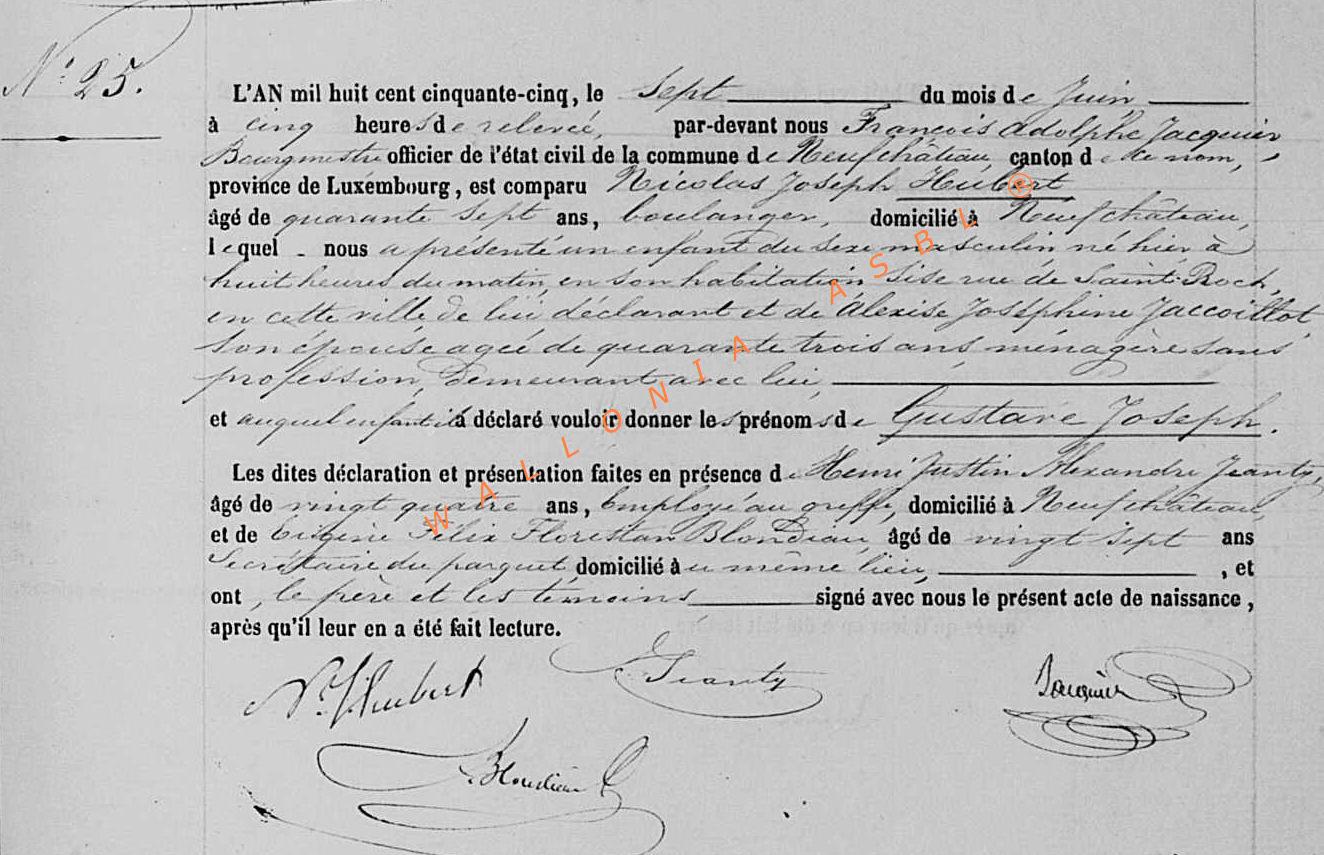 N° 25.
L'AN mil huit cent cinquante-cinq, le Sept du mois de Juin
à cinq heures de relevée, par-devant nous François Adolphe Jacquier
Bourgmestre officier de l'état civil de la commune de Neufchâteau, canton de ce nom,
province de Luxembourg, est comparu Nicolas Joseph Hubert
âgé de quarante sept ans, boulanger, domicilié à Neufchâteau,
lequel nous a présenté un enfant du sexe masculin né hier à
huit heures du matin, en son habitation, sise rue de Saint-Roch,
en cette ville de lui déclarant et de Alexise Joséphine Jaccoillot
son épouse agée de quarante trois ans ménagère sans
profession, demeurant avec lui,
et auquel enfant il a déclaré vouloir donner les prénoms de Gustave Joseph.
Les dites déclaration et présentation faites en présence de Henri Justin Alexandre Jeanty,
âgé de vingt quatre ans, Employé au greffe, domicilié à Neufchâteau,
et de Eugène Félix Florestan Blondeau, âgé de vingt sept ans
Secrétaire du parquet, domicilié au même lieu, , et
ont, le père et les témoins signé avec nous le présent acte de naissance,
après qu'il leur en a été fait lecture.
N. J. Hubert Jeanty Jacquier
Blondeau
WALLONIA ASBL ®